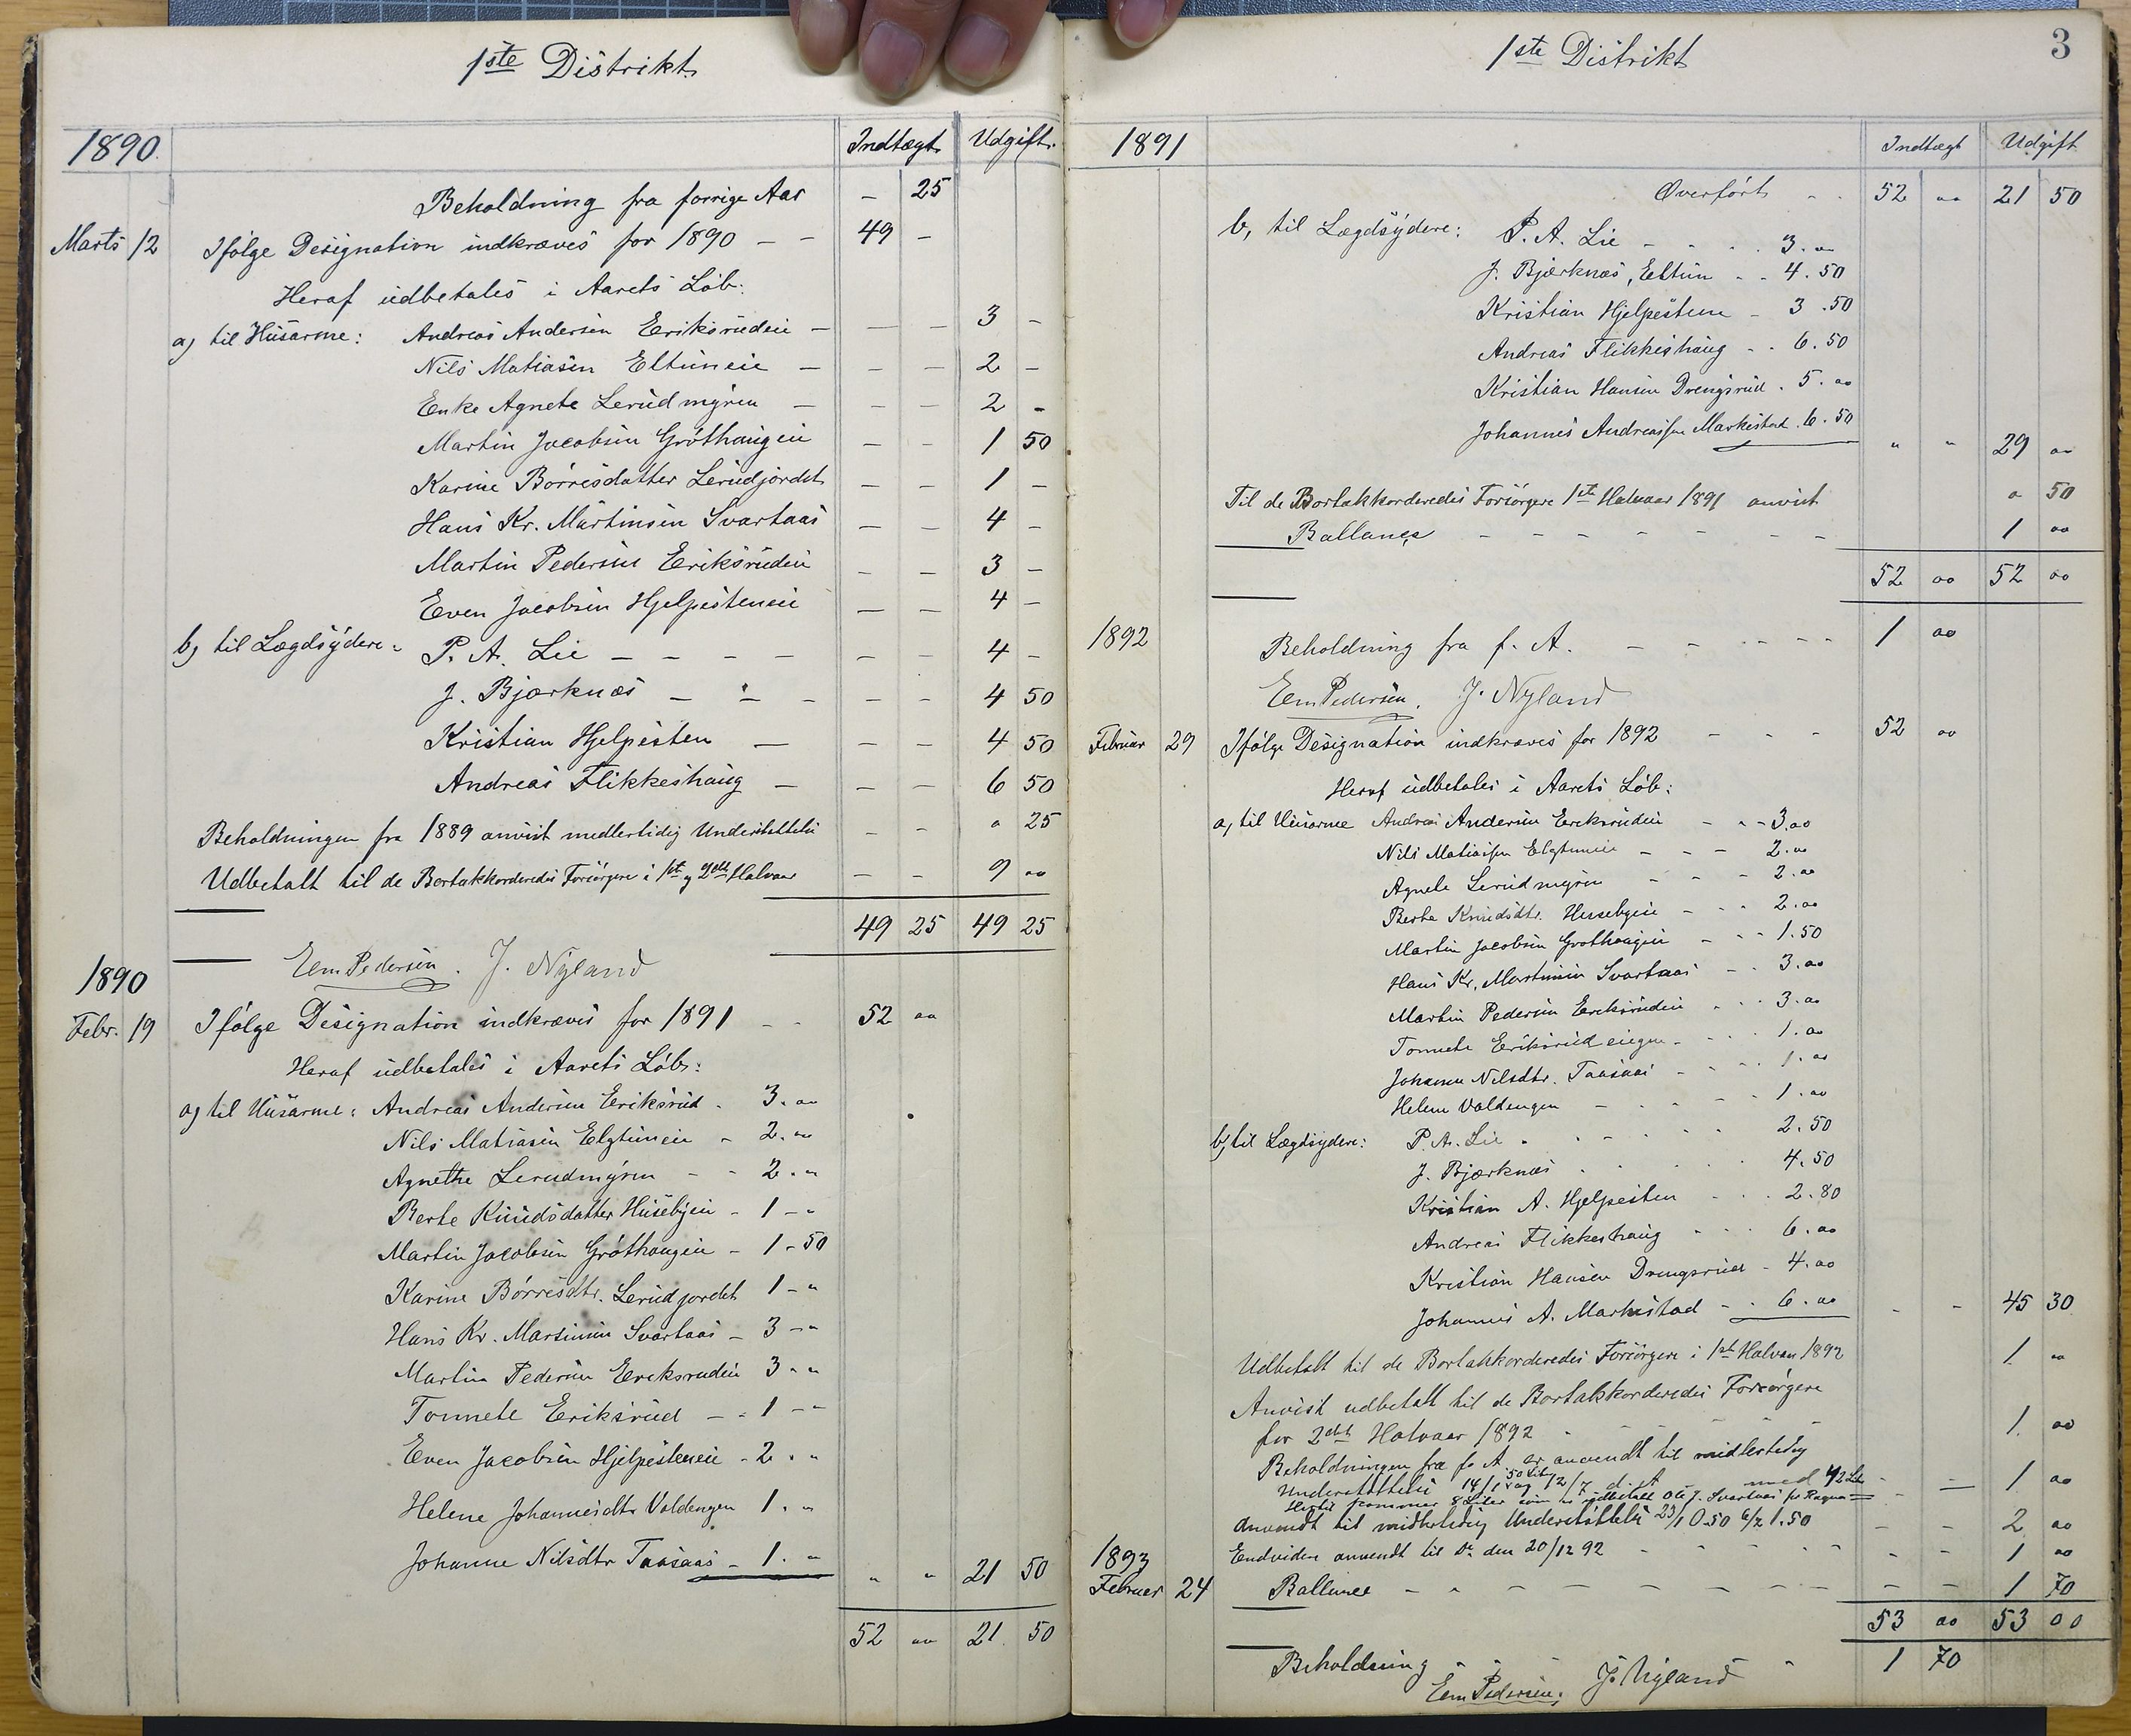 1ste Distrikt
1890. Indtægt Udgift.
Beholdning fra forrige Aar - 25
Marts 12 Ifølge Designation indkræves for 1890 - - 49 -
Heraf udbetales i Aarets Løb:
a) til Husarme: Andreas Andersen Eriksrudeie - - - 3 -
Nils Matiasen Eltuneie - - - 2 -
Enke Agnete Lerudmyren - - - 2 -
Martin Jacobsen Grøthaugeie - - 1 50
Karine Børresdatter Lerudjordet - - 1 -
Hans Kr. Martinsen Svartaas - - 4 -
Martin Pedersen Eriksrudeie - - 3 -
Even Jacobsen Hjelpesteneie - - 4 -
b) til Lægdsydere: P. A. Lie - - - - - - 4 -
J. Bjærknæs - - - - - 4 50
Kristian Hjelpesten - - - 4 50
Andreas Flikkeshaug - - - 6 50
Beholdningen fra 1889 anvist medlertidig Understøttelse - - " 25
Udbetalt til de Bortakkorderedes Forsørgere i 1st og 2det Halvaar - - 9 "
49 25 49 25
Em Pedersen. J. Nyland
1890
Febr. 19 Ifølge Designation indkræves for 1891 - 52 "
Heraf udbetales i Aarets Løb:
a) til Husarme: Andreas Andersen Eriksrud - 3. "
Nils Matiasen Elgtuneie - 2. "
Agnethe Lerudmyren - - 2. "
Berte Knudsdatter Husebyeie - 1 - "
Martin Jacobsen Grøthaugeie - 1 - 50
Karine Børresdtr. Lerudjordet 1 - "
Hans Kr. Martinsen Svartaas - 3 - "
Martin Pedersen Eriksrudeie 3 - "
Tonnete Eriksrud - - 1 - "
Even Jacobsen Hjelpesteneie - 2. "
Helene Johannesdtr Valdengen 1. "
Johanne Nilsdtr Taasaas - 1. " " " 21 50
52 " 21 50
1ste Distrikt 3
1891 Indtægt Udgift
Overført - - 52 " 21 50
b, til Lægdsydere: P. A. Lie - - - - 3. "
J. Bjærknæs, Eltun - - 4. 50
Kristian Hjelpesten - 3. 50
Andreas Flikkeshaug - - 6. 50
Kristian Hansen Drengsrud. 5. "
Johannes Andreassen Markestad. 6. 50 " " 29 "
Til de Bortakkorderedes Forsørgere 1ste Halvaar 1891 anvist " 50
Ballance - - - - - - - - 1 "
52 " 52 "
1892 Beholdning fra f. A. - - - - - 1 "
Em Pedersen. J. Nyland
Februar 29 Ifølge Designation indkræves for 1892 - - - 52 "
Heraf udbetales i Aarets Løb:
a, til Husarme Andreas Andersen Eriksrudeie - - - 3. "
Nils Matiassen Elgtuneie - - - 2. "
Agnete Lerudmyren - - - 2. "
Berte Knudsdtr. Husebyeie - - - 2. "
Martin Jacobsen Grøthaugeie - - - 1. 50
Hans Kr. Martinsen Svartaas - - 3. "
Martin Pedersen Eriksrudeie - - - 3. "
Tonnete Eriksrudeiegn - - - 1. "
Johanne Nilsdtr. Taasaas - - - - 1. "
Helene Valdengen - - - - - 1. "
b, til Lægdsydere: P. A. Lie - - - - - 2. 50
J. Bjærknæs - - - - - 4. 50
Kristian A. Hjelpesten - - - 2. 80
Andreas Flikkeshaug - - - 6. "
Kristian Hansen Drengsrud - 4. "
Johannes A. Markestad - - 6. " - - 45 30
Udbetalt til de Bortakkorderedes Forsørgere i 1st Halvaar 1892 1 "
Anvist udbetalt til de Bortakkorderedes Forsørgere
for 2det Halvaar 1892 - - - - - 1. "
Beholdningen fra f. A. er anvendt til midlertedig
Understøttelse 14/1 og 12/7 d. A. med - - 1 "
Hertil kommer 8 Liter som er udbetalt
Anvendt til midlertedig Understøttelse 23/1 0.50 6/2 1.50 - - 2 "
Endvidere anvendt til Do den 20/12 92 - - - - - - - 1 "
1893
Februar 24 Ballance - - - - - - - - - - 1 70
53 " 53 00
Beholdning - - - - 1 70
Em Pedersen. J. Nyland